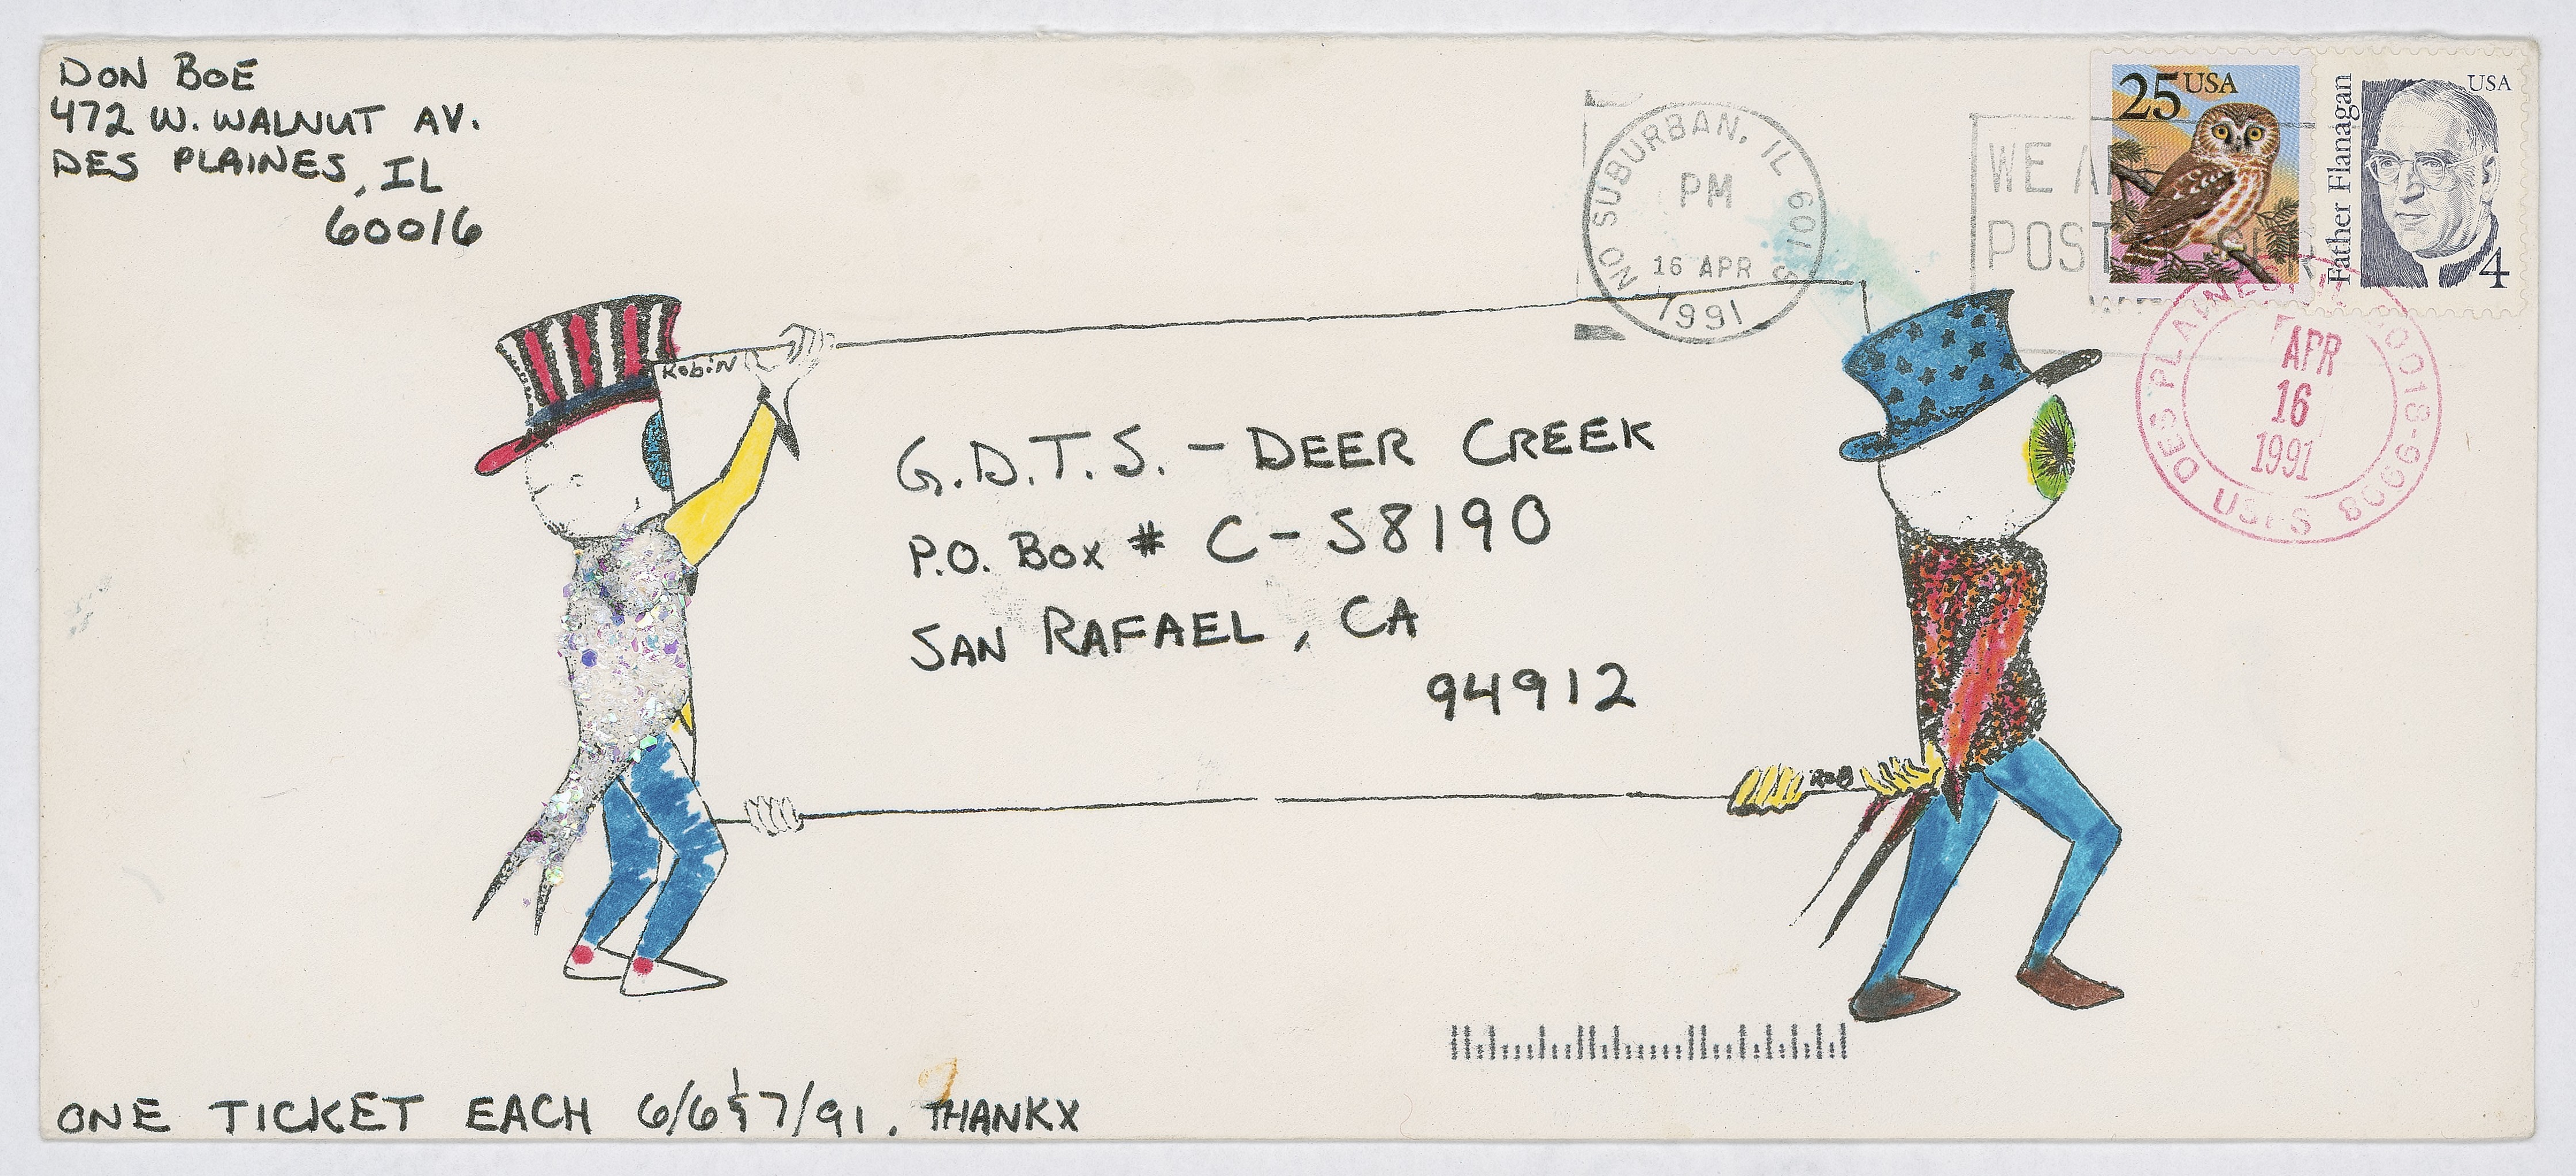 DON BOE
472 W. WALNUT AV.
DES PLAINES, IL
60016
NO SUBURBAN, IL 601
PM
16 APR
1991
WE A
POST
25 USA
Father Flanagan
USA
4
DES PLAINES 60018-9998
APR
16
1991
USPS
Robin
G.D.T.S. - DEER CREEK
P.O. BOX # C-S8190
SAN RAFAEL, CA
94912
ROB
ONE TICKET EACH 6/6 & 7/91. THANKX